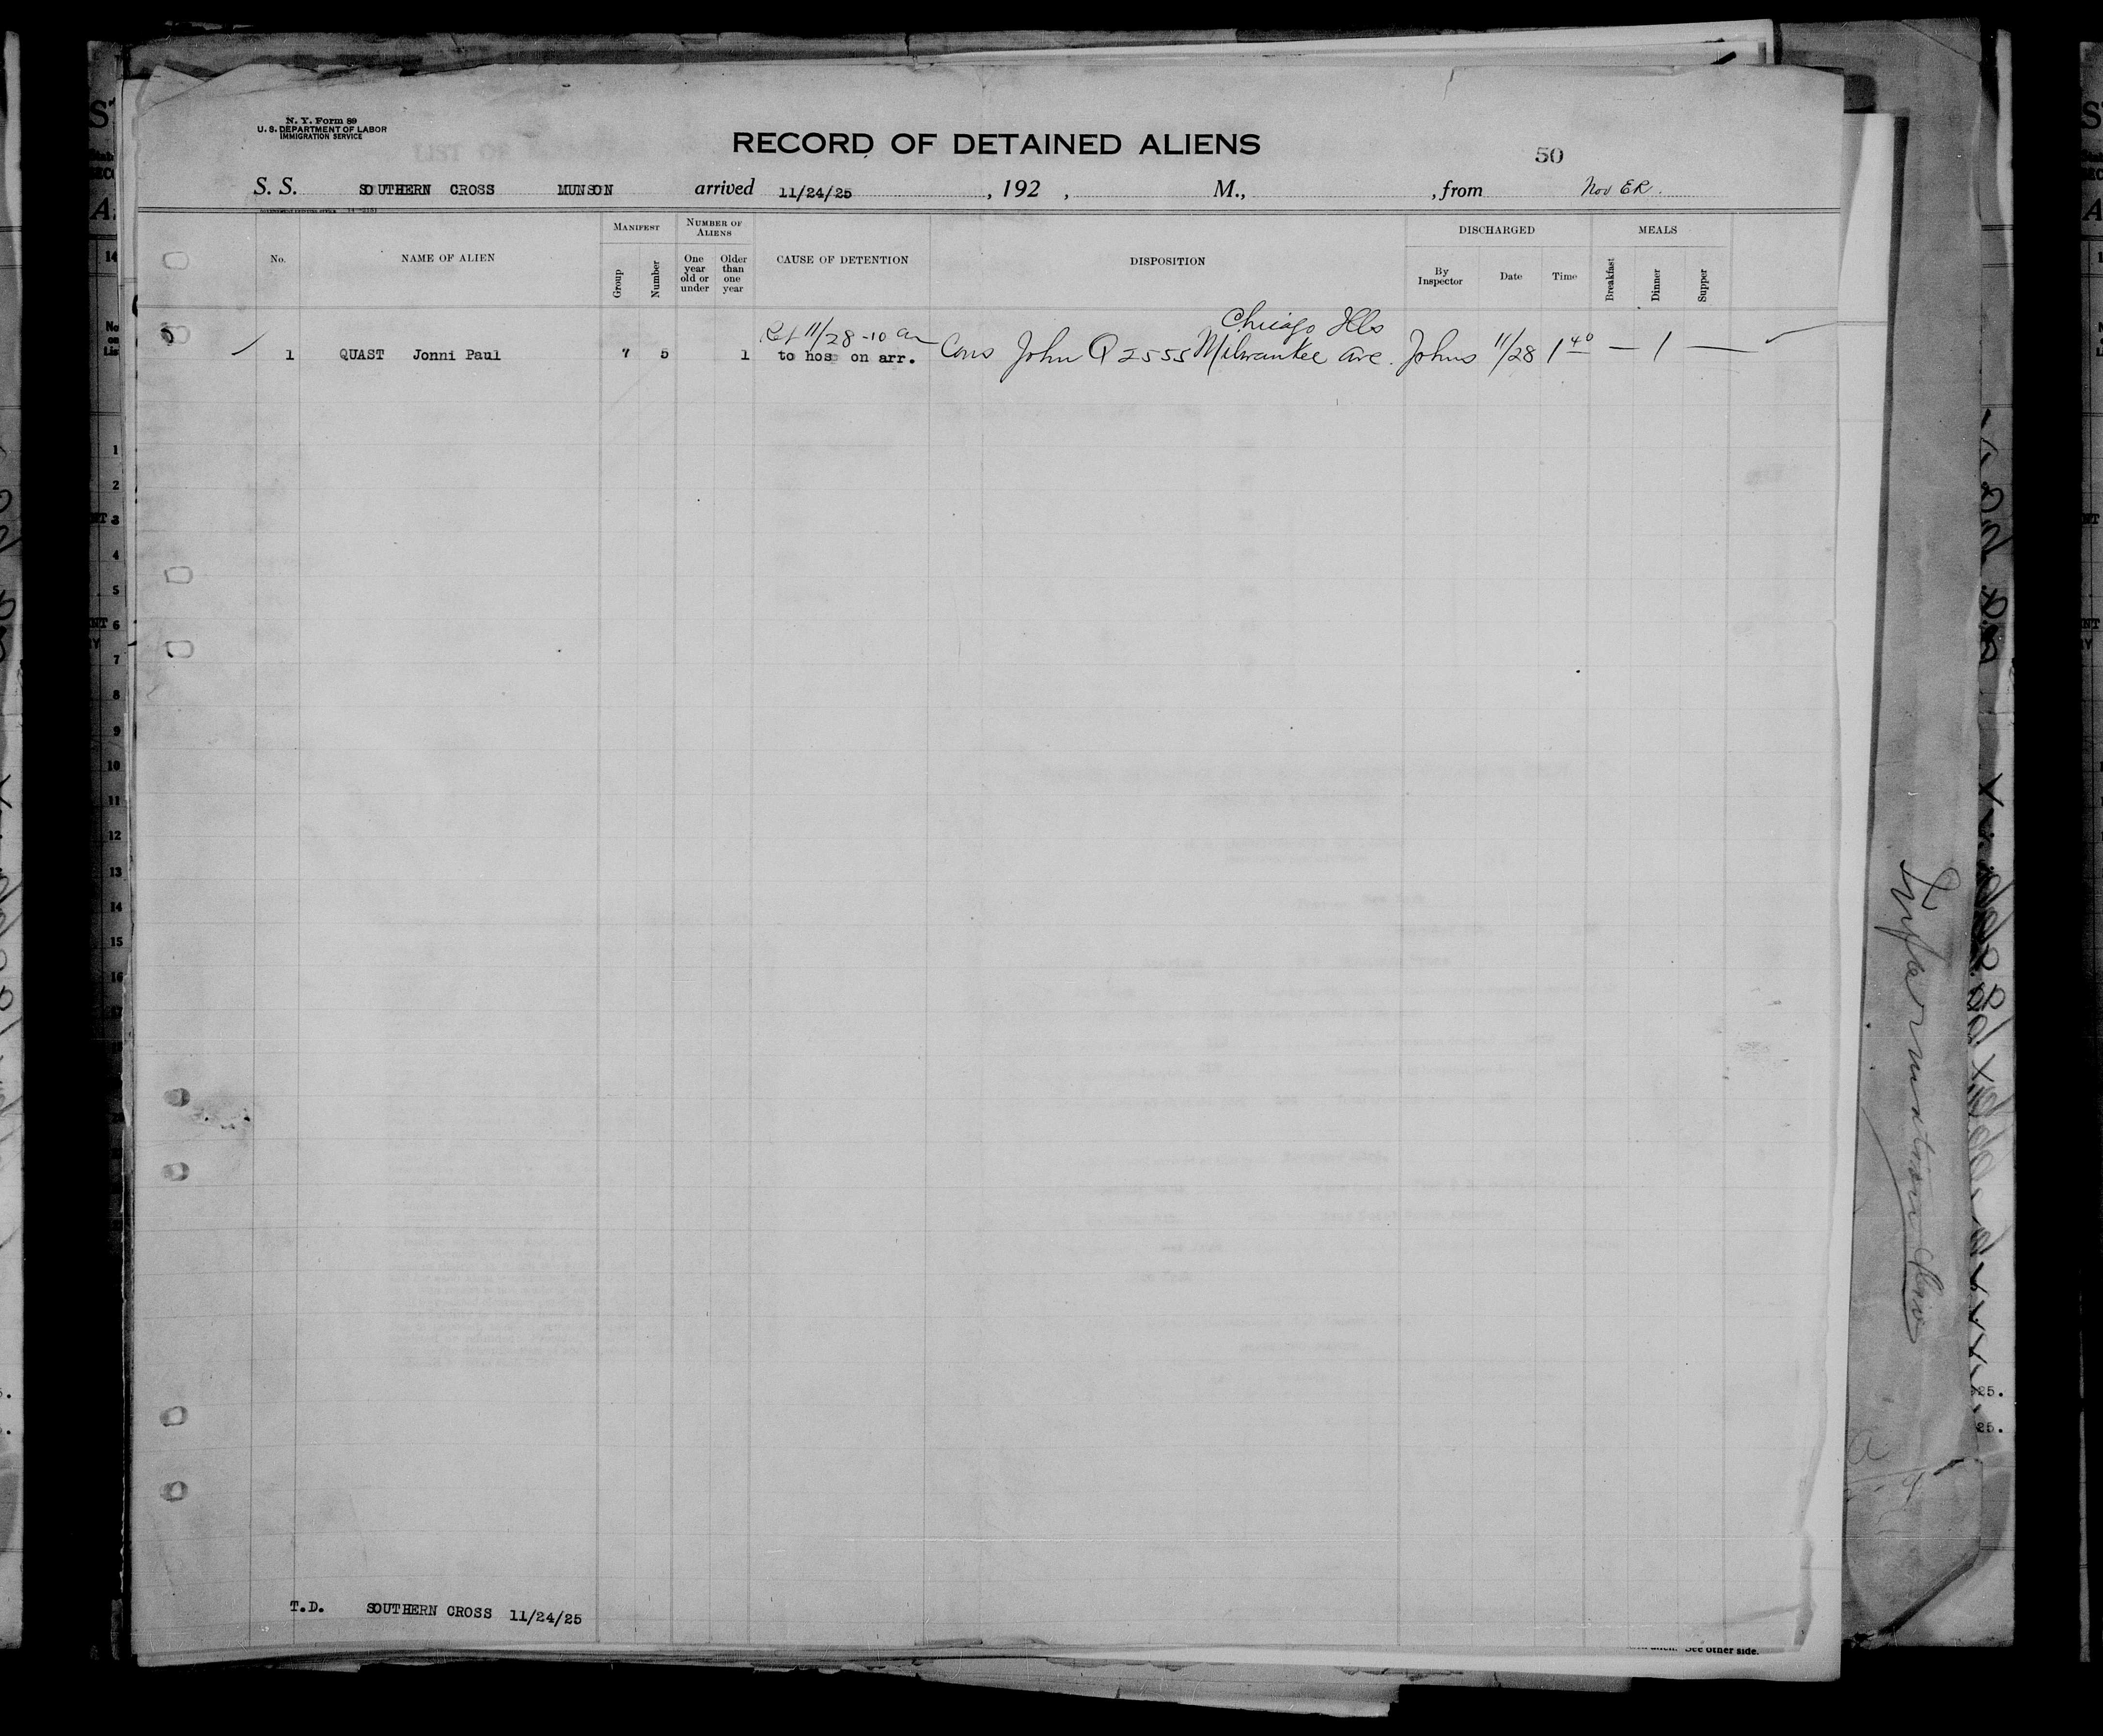 N. Y. Form 89
U. S. DEPARTMENT OF LABOR
IMMIGRATION SERVICE
RECORD OF DETAINED ALIENS
50
S. S. SOUTHERN CROSS MUNSON arrived 11/24/25, 192 , M., , from Nov ER.
No.
NAME OF ALIEN
MANIFEST
Group
Number
NUMBER OF ALIENS
One year old or under
Older than one year
CAUSE OF DETENTION
DISPOSITION
DISCHARGED
By Inspector
Date
Time
MEALS
Breakfast
Dinner
Supper
11/28 - 10 am
Chicago Ills
1 QUAST Jonni Paul 7 5 1 to hos on arr. Cons John Q 2555 Milwaukee Ave. Johns 11/28 1 40 — 1 —
T.D. SOUTHERN CROSS 11/24/25
See other side.
Information